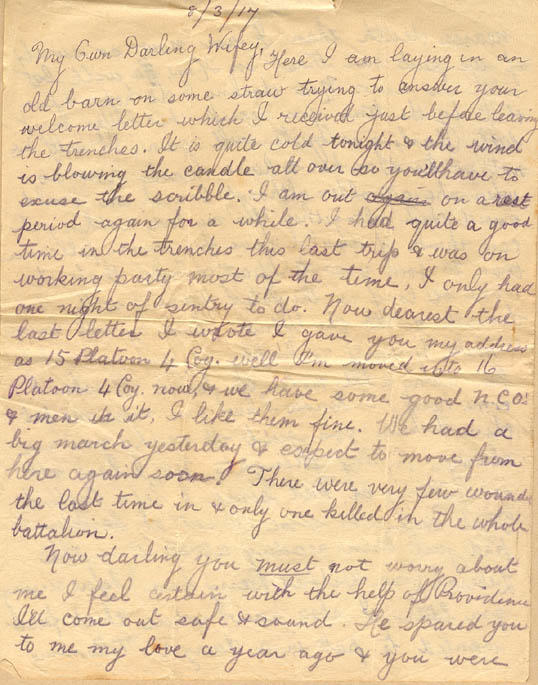 8/3/17
My Own Darling Wifey, Here I am laying in an
old barn on some straw trying to answer your
welcome letter which I received just before leaving
the trenches. It is quite cold tonight & the wind
is blowing the candle all over so you'll have to
excuse the scribble. I am out again on a rest
period again for a while. I had quite a good
time in the trenches this last trip & was on
working party most of the time, I only had
one night of sentry to do. Now dearest the
last letter I wrote I gave you my address
as 15 Platoon 4 Coy. well I'm moved into 16
Platoon 4 Coy. now, & we have some good N.C.O.
& men in it, I like them fine. We had a
big march yesterday & expect to move from
here again soon. There were very few wounded
the last time in & only one killed in the whole
battalion.
Now darling you must not worry about
me I feel certain with the help of Providence
I'll come out safe & sound. He spared you
to me my love a year ago & you were